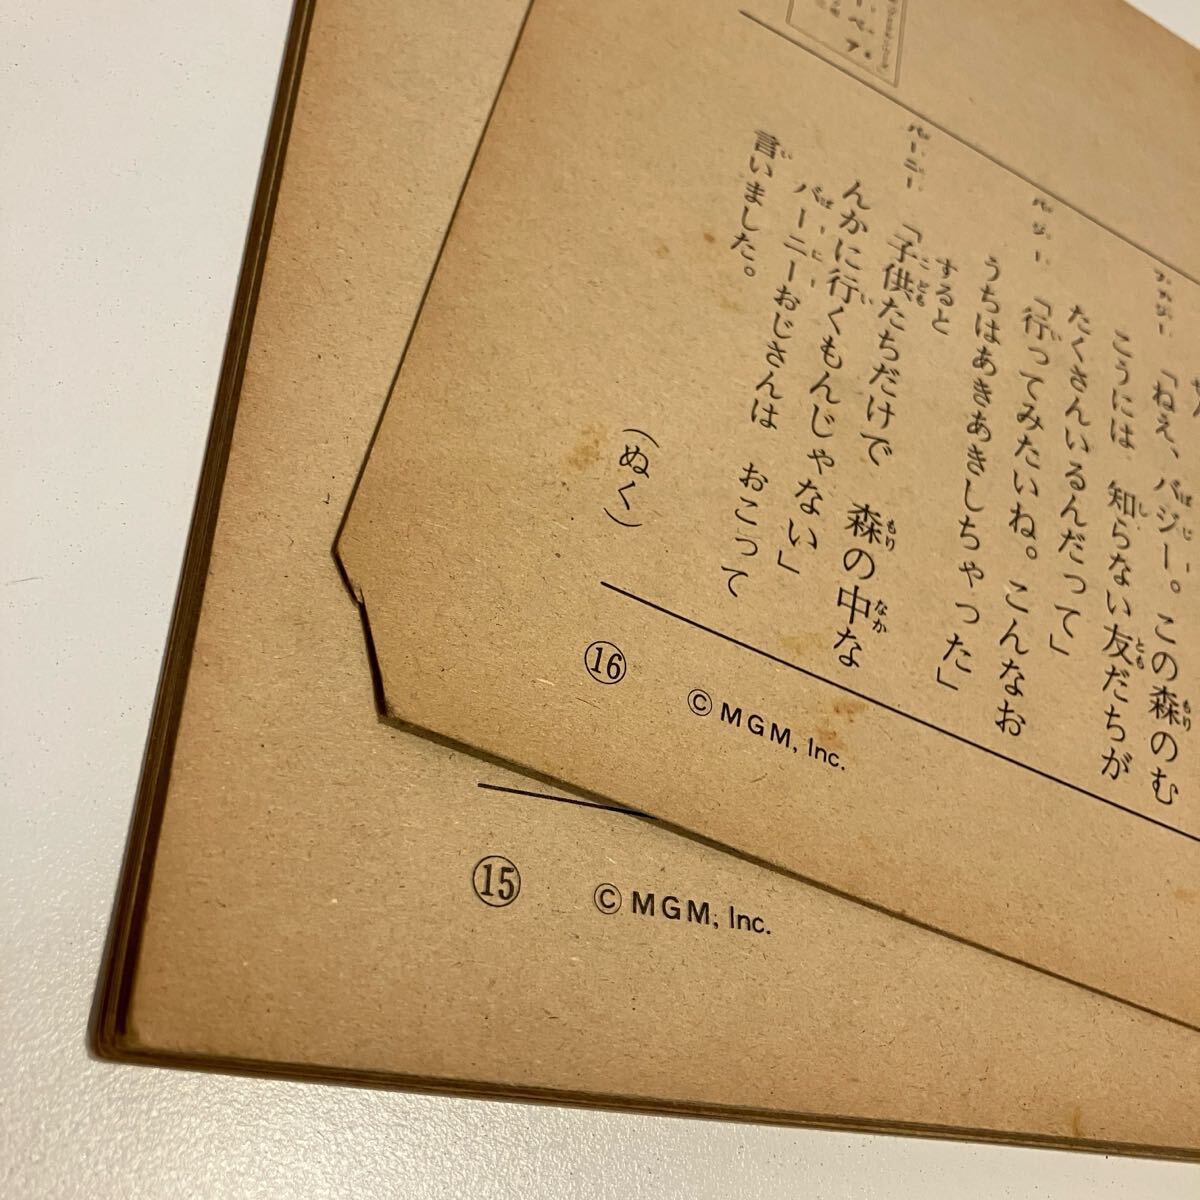 「ねえ、バジー。この森のむ
こうには 知らない友だちが
たくさんいるんだって」
バジー 「行ってみたいね。こんなお
うちはあきあきしちゃった」
すると
バーニー 「子供たちだけで 森の中な
んかに行くもんじゃない」
バーニーおじさんは おこって
言いました。
(ぬく)
⑯ © MGM, Inc.
⑮ © MGM, Inc.